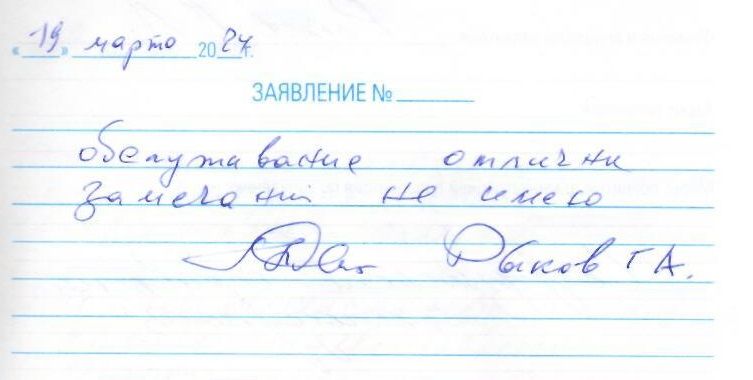 «19» марта 2024г.
ЗАЯВЛЕНИЕ №
обслуживание отлични
замечании не имею
Рыков Г А.